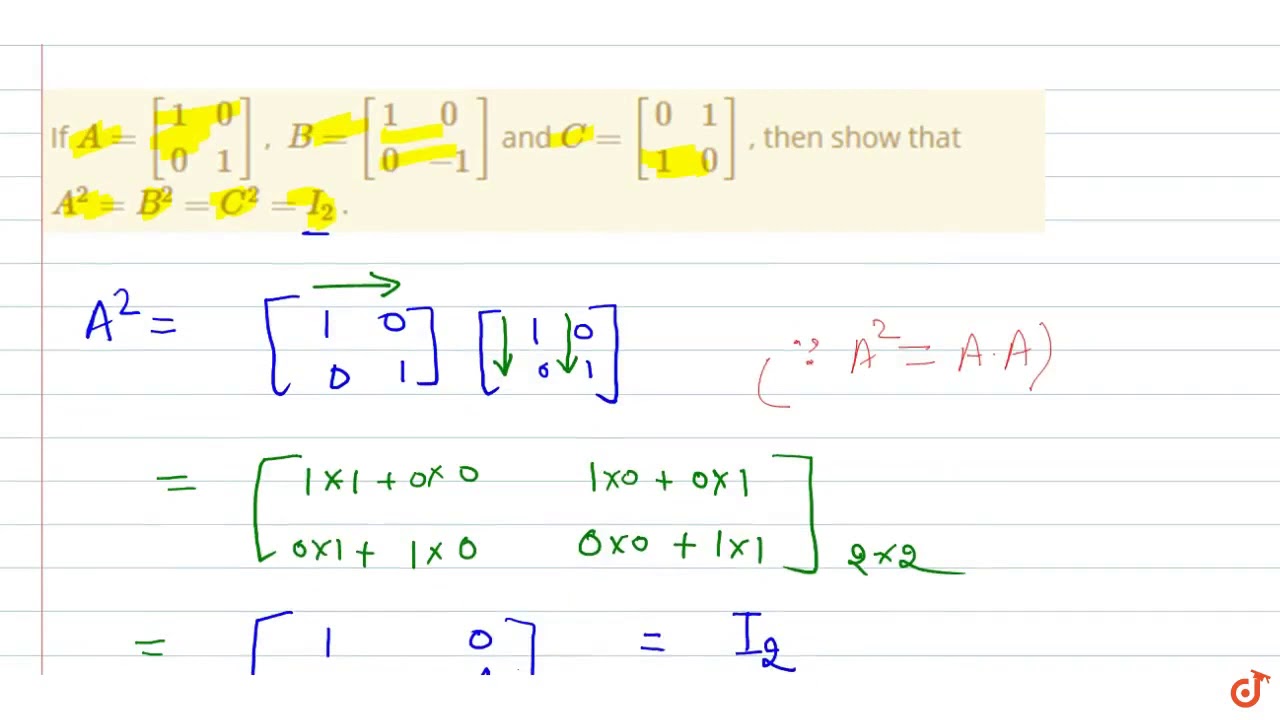 If A = [1 0; 0 1] , B = [1 0; 0 −1] and C = [0 1; 1 0] , then show that
A² = B² = C² = I₂ .
A² = [1 0; 0 1] [1 0; 0 1] (∵ A² = A.A)
= [1×1 + 0×0 1×0 + 0×1; 0×1 + 1×0 0×0 + 1×1] 2×2
= [1 0 = I₂